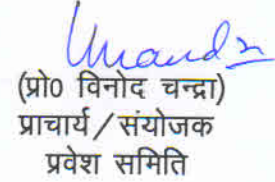 (प्रो0 विनोद चन्द्रा)
प्राचार्य / संयोजक
प्रवेश समिति